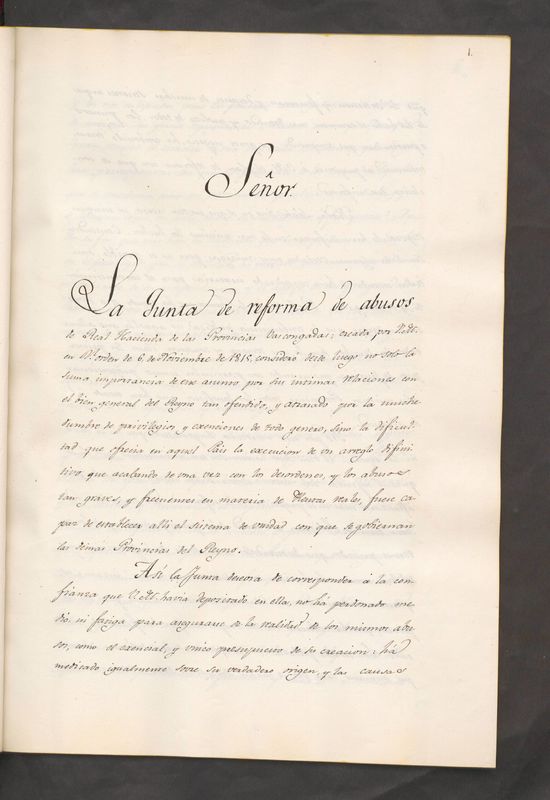 1.
Señor.
La Junta de reforma de abusos
de Real Hacienda de las Provincias Vascongadas, creada por V.M.
en Rl. orden de 6, de Noviembre de 1815, consideró desde luego no solo la
suma importancia de ese asunto por sus intimas relaciones con
el bien general del Reyno tan ofendido, y atacado por la muche
dumbre de privilegios y exenciones de todo genero, sino la dificul
tad que ofrecia en aquel Pais la execucion de un arreglo difini
tivo, que acabando de una vez con los desordenes, y los abusos
tan graves, y frecuentes en materia de Rentas reales, fuese ca
paz de establecer alli el sistema de unidad con que se gobiernan
las demas Provincias del Reyno.
Asi la Junta deseosa de corresponder á la con
fianza que V.M. havia depositado en ella, no há perdonado me
dio, ni fatiga para asegurarse de la realidad de los mismos abu
sos, como el esencial, y unico presupuesto de su creacion: há
meditado igualmente sobre su verdadero origen, y las causas